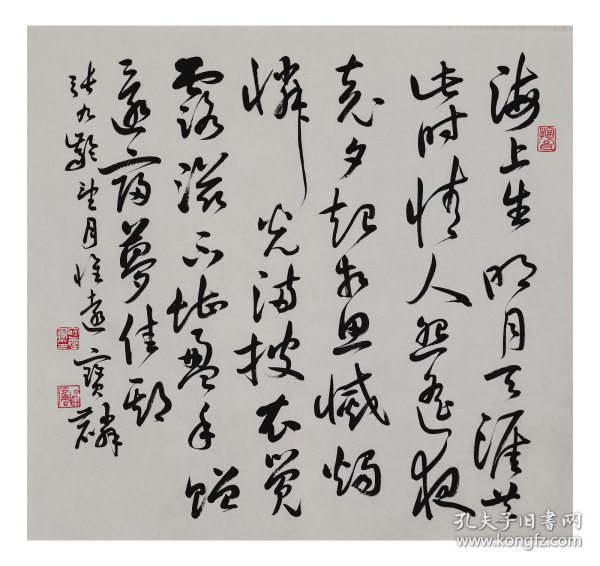 海上生明月天涯共
此时情人怨遥夜
竟夕起相思滅燭
憐光满披衣觉
露滋不堪盈手赠
还寝夢佳期
张九齡望月怀遠 寶麟
孔夫子旧书网
www.kongfz.com